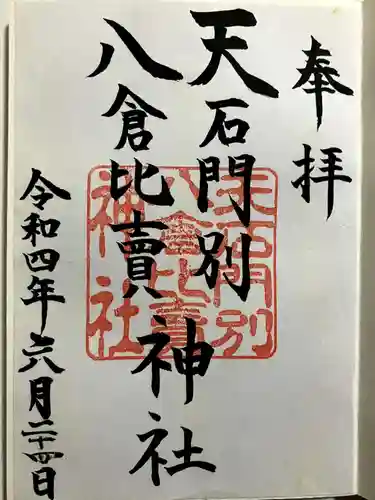 奉拝
天石門別
八倉比賣神社
令和四年六月二十四日
天石門別
八倉比賣
神社